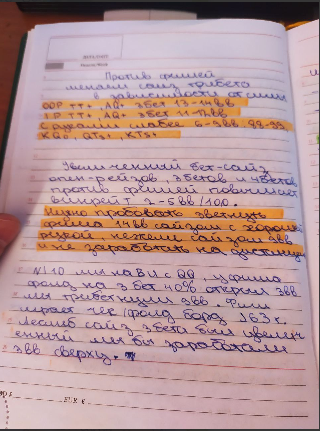 Против фишей
меняем сайз трибета
в зависимости от силы
OOP TT+, AQ+ 3бет 13-14BB
IP TT+, AQ+ 3бет 11-12BB
С руками слабее 6-9BB, 88-99,
KQo, QTs+, KTs+
Увеличенный бет-сайз
опен-рейзов, 3бетов и 4бетов
против фишей повышает
винрейт 2-5BB/100.
Нужно пробовать
фиша 14BB сайзом с хорошей
рукой, нежели сайзом 9BB
и не заработать на дистанции
№1.10 мы на BU с QQ, у фиша
фолд на 3бет 40% открыл 3BB
мы трибетнули 9BB. Фиш
играет чек/фолд борд
если б сайз 3бета был увелич
енный мы бы заработали
3BB сверху.